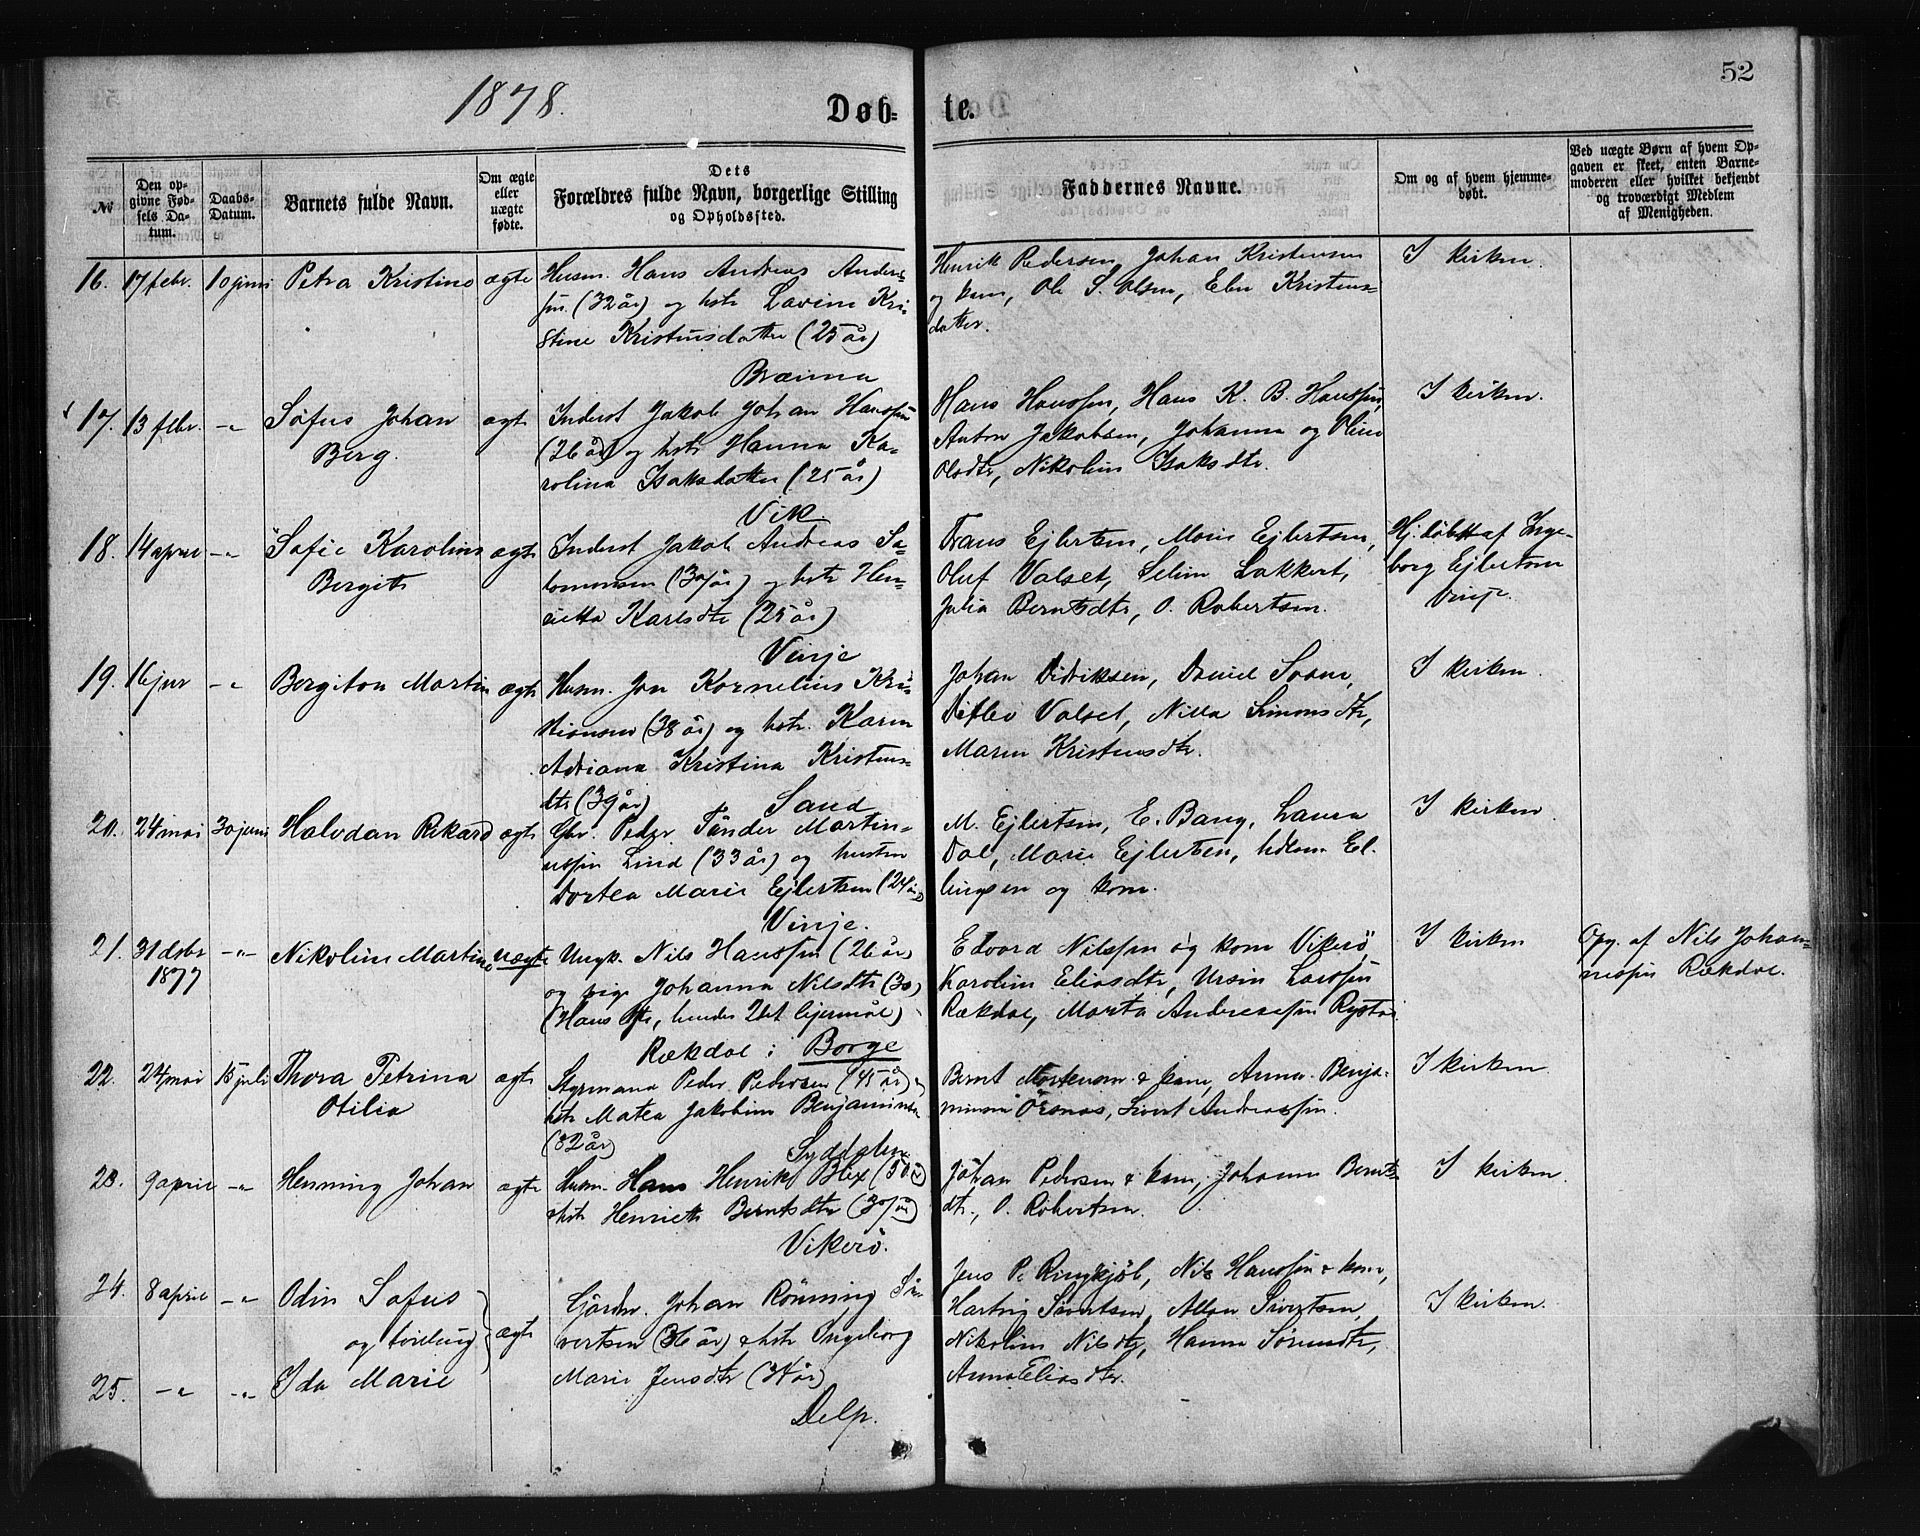 52
1878.
Døb-
te.
№
Den op-
givne Fød-
sels Da-
tum.
Daabs-
Datum.
Barnets fulde Navn.
Om ægte
eller
uægte
fødte.
Dets
Forældres fulde Navn, borgerlige Stilling
og Opholdssted.
Faddernes Navne.
Om og af hvem hjemme-
døbt.
Ved uægte Børn af hvem Op-
gaven er skeet, enten Barne-
moderen eller hvilket bekjendt
og troværdigt Medlem
af Menigheden.
16. 17 febr. 10 juni Petra Kristine ægte
Husm. Hans Andreas Anders-
sen (32 år) og hstr Lavine Kri-
stine Kristensdatter (25 år)
Brænna
Henrik Pedersen, Johan Kristensen
og kone, Ole S. Olsen, Elen Kristens-
datter.
I kirken.
17. 13 febr. -"- Sofus Johan
Berg.
ægte
Inderst Jakob Johan Hanssen
(26 år) og hstr Hanna Ka-
rolina Isaksdatter (25 år)
Vik.
Hans Hanssen, Hans K. B. Hanssen,
Anton Jakobsen, Johanna og Oline
Olsdtr, Nikoline Isaksdtr.
I kirken.
18. 14 april -"- Sofie Karoline
Bergite
ægte
Inderst Jakob Andreas Sa-
lomonsen (30 år) og hstr Hen-
riette Karlsdtr (25 år)
Vinje
Frans Ejlertsen, Marie Ejlertsen,
Oluf Valset, Seline Lakkert,
Julia Berntsdtr, O. Robertsen.
Hj. døbt af Inge-
borg Ejlertsen
Vinje.
19. 16 jan -"- Bergiton Martin ægte
Husm. Jon Kornelius Kri-
stiansen (38 år) og hstr. Karen
Adriana Kristina Kristens-
dtr (39 år)
Sand
Johan Didriksen, Daniel Sand,
Detlev Valset, Nilla Simonsdtr,
Maren Kristensdtr.
I kirken.
20. 24 mai 30 juni Halvdan Rikard ægte
Gbr. Peder Tånder Martin-
ussen Lind (33 år) og hustru
Dortea Marie Ejlertsen (24 år)
Vinje.
M. Ejlertsen, E. Bang, Laura
Dal, Marie Ejlertsen, El-
lingsen og kone.
I kirken.
21. 31 dsbr -"- Nikoline Martine uægte
1877
Ungk. Nils Hanssen (26 år)
og pige Johanna Nilsdtr (30)
(Hans 1ste, hendes 2det lejermål)
Rækdal i Borge
Edvard Nilssen og kone Vikerö,
Karoline Eliasdtr, Ursin Larssen
Rækdal, Marta Andreassen Rystad
I kirken
Opg. af Nils Johan-
nessen Rækdal.
22. 24 mai 15 juli Thora Petrina
Otilia
ægte
Styrmand Peder Pedersen (45 år) og
hstr Matea Jakobine Benjaminsen
(32 år)
Syddalen
Bernt Mortensen & kone, Anna Benja-
minsen Örsnes, Sivert Andreassen.
I kirken
23. 9 april -"- Henning Johan ægte
Husm. Hans Henrik Blix (50 år)
& hstr Henriette Berntsdtr (30 år)
Vikerö.
Johan Pedersen & kone, Johanne Bernts-
dtr, O. Robertsen.
I kirken.
24. 8 april -"- Odin Sofus
og tvilling
ægte
Gårdm. Johan Rönning Si-
vertsen (36 år) & hstr Ingeborg
Marie Jensdtr (34 år)
Delp.
Jens P. Ringkjöb, Nils Hanssen & kone,
Hartvig Sivertsen, Allan Sivertsen,
Nikoline Nilsdtr, Hanna Sörensdtr,
Anna Eliasdtr.
I kirken.
25. -"- -"- Ida Marie